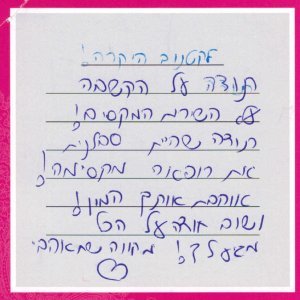 לקטנוב היקרה!
תודה על הקשבה
על השירות המקסים!
תודה שהיית סבלנית
את רופאה מקסימה!
אוהבת אותך המון!
ושוב תודה על הכל
מגעל קב! מקווה שתאהבי